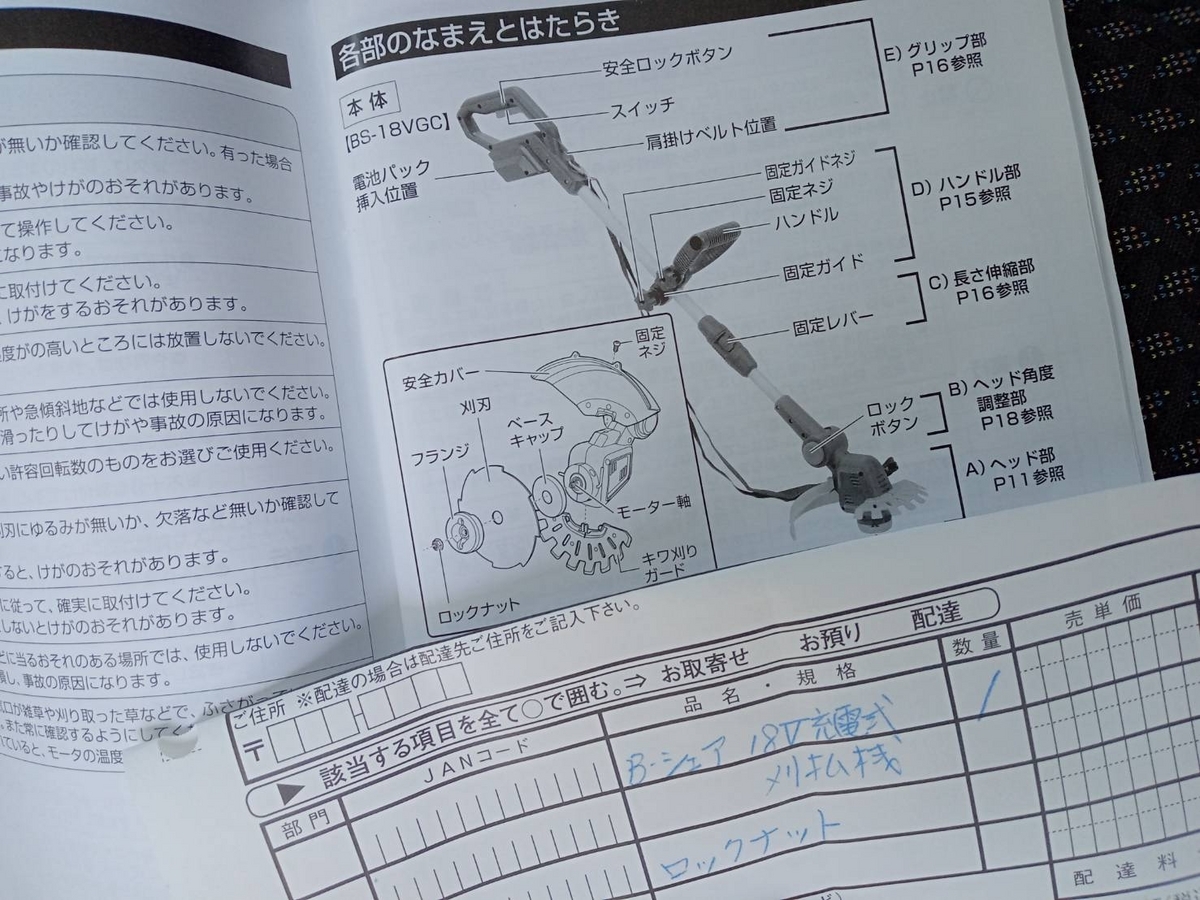 が無いか確認してください。有った場合
事故やけがのおそれがあります。
て操作してください。
になります。
に取付けてください。
、けがをするおそれがあります。
温度がの高いところには放置しないでください。
所や急傾斜地などでは使用しないでください。
滑ったりしてけがや事故の原因になります。
い許容回転数のものをお選びご使用ください。
刈刃にゆるみが無いか、欠落など無いか確認して
すると、けがのおそれがあります。
に従って、確実に取付けてください。
としないとけがのおそれがあります。
どに当るおそれのある場所では、使用しないでください。
損し、事故の原因になります。
気口が雑草や刈り取った草などで、ふさがっ
。また常に確認するようにしてく
いていると、モータの温度
各部のなまえとはたらき
本体
【BS-18VGC】
安全ロックボタン
スイッチ
肩掛けベルト位置
電池パック
挿入位置
E) グリップ部
P16参照
固定ガイドネジ
固定ネジ
ハンドル
固定ガイド
D) ハンドル部
P15参照
固定レバー
C) 長さ伸縮部
P16参照
ロック
ボタン
B) ヘッド角度
調整部
P18参照
A) ヘッド部
P11参照
固定
ネジ
安全カバー
刈刃
ベース
キャップ
フランジ
モーター軸
キワ刈り
ガード
ロックナット
ご住所 ※配達の場合は配達先ご住所をご記入下さい。
〒
▶ 該当する項目を全て○で囲む。⇒ お取寄せ お預り 配達
部門 JANコード 品名・規格 数量 売単価
B-シェア 18V充電式 1
刈払機
ロックナット
配達料